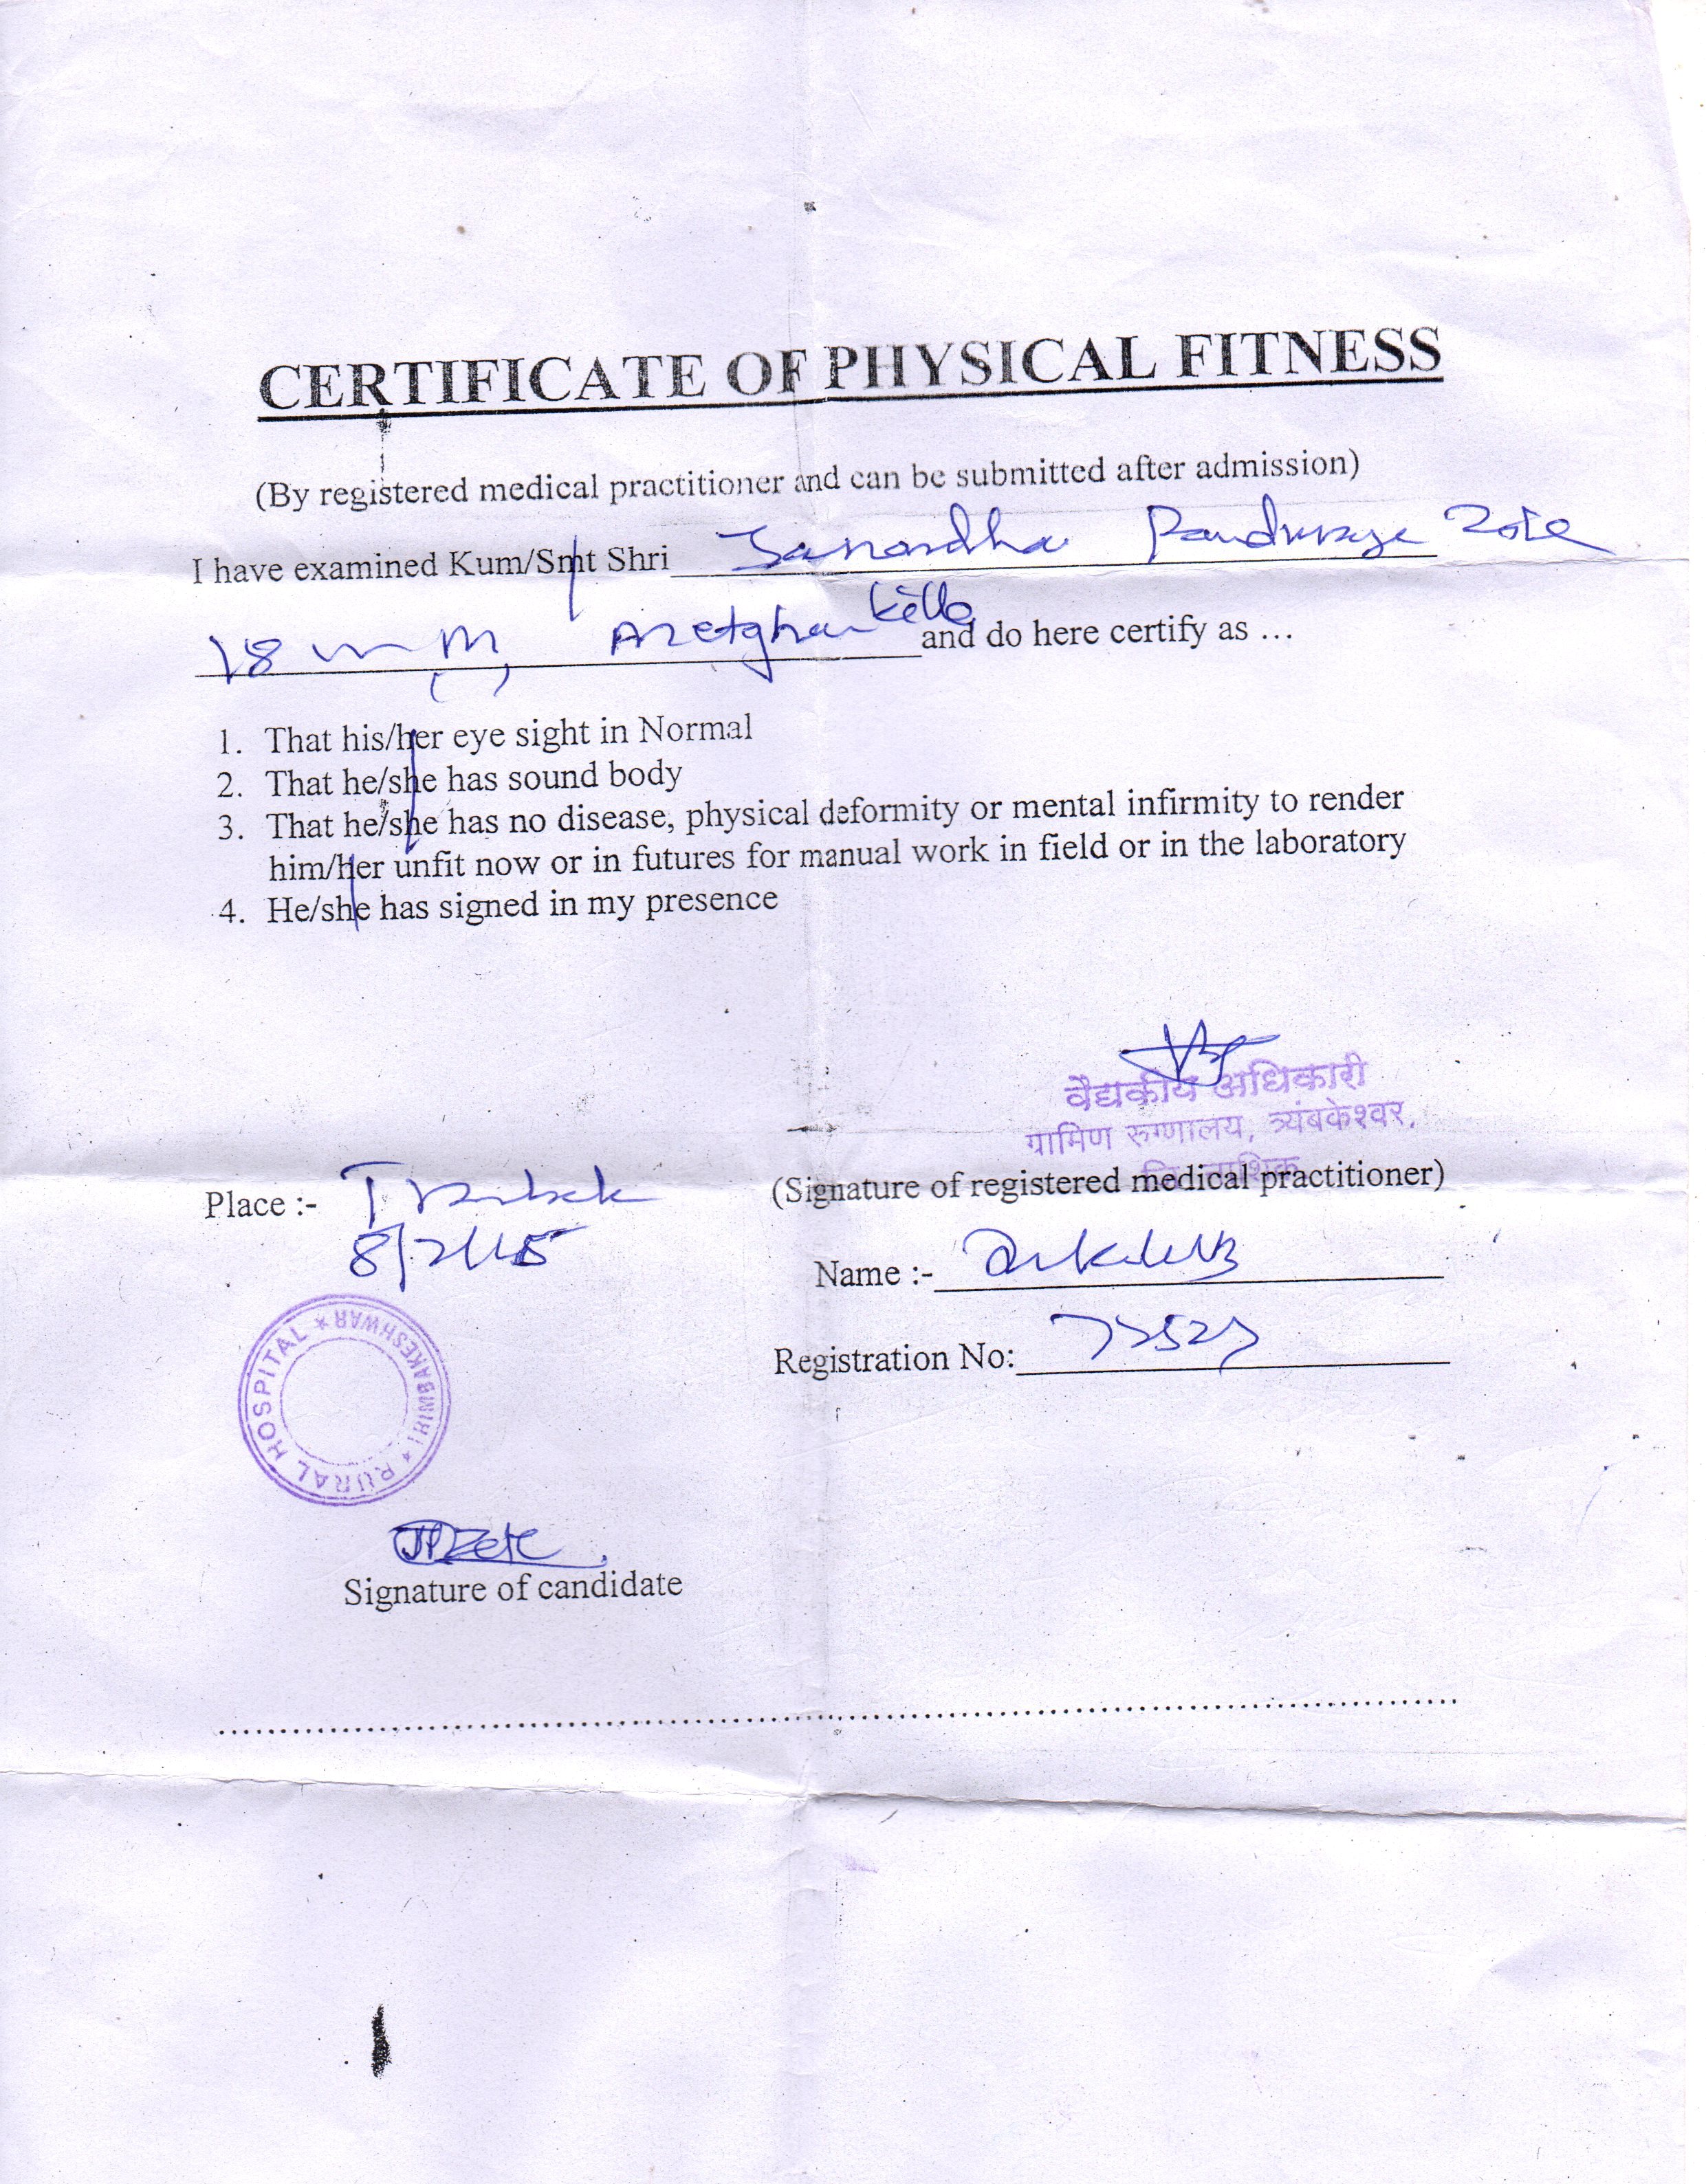 CERTIFICATE OF PHYSICAL FITNESS
(By registered medical practitioner and can be submitted after admission)
I have examined Kum/Smt Shri Zote
18 M, and do here certify as ...
1. That his/her eye sight in Normal
2. That he/she has sound body
3. That he/she has no disease, physical deformity or mental infirmity to render
him/her unfit now or in futures for manual work in field or in the laboratory
4. He/she has signed in my presence
वैद्यकीय अधिकारी
ग्रामिण रुग्णालय, त्र्यंबकेश्वर,
जि. नाशिक
(Signature of registered medical practitioner)
Place :- Trimbak
8/7/15
Name :-
Registration No:
RURAL HOSPITAL * TRIMBAKESHWAR *
JPZote
Signature of candidate